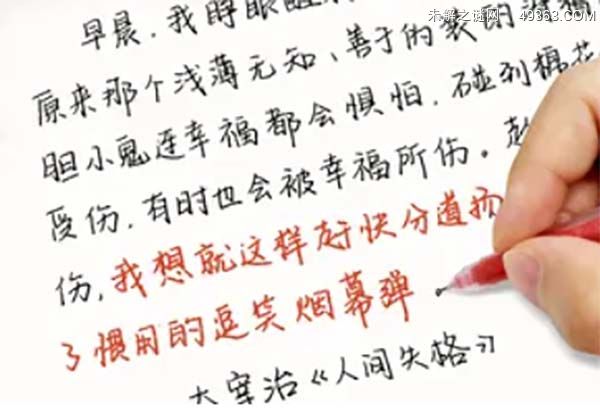 未解之谜网 49363.COM
早晨，我睁眼醒
原来那个浅薄无知、善于伪装的
胆小鬼连幸福都会惧怕，碰到棉花
受伤，有时也会被幸福所伤。趁
伤，我想就这样赶快分道扬
了惯用的逗笑烟幕弹。
太宰治《人间失格》